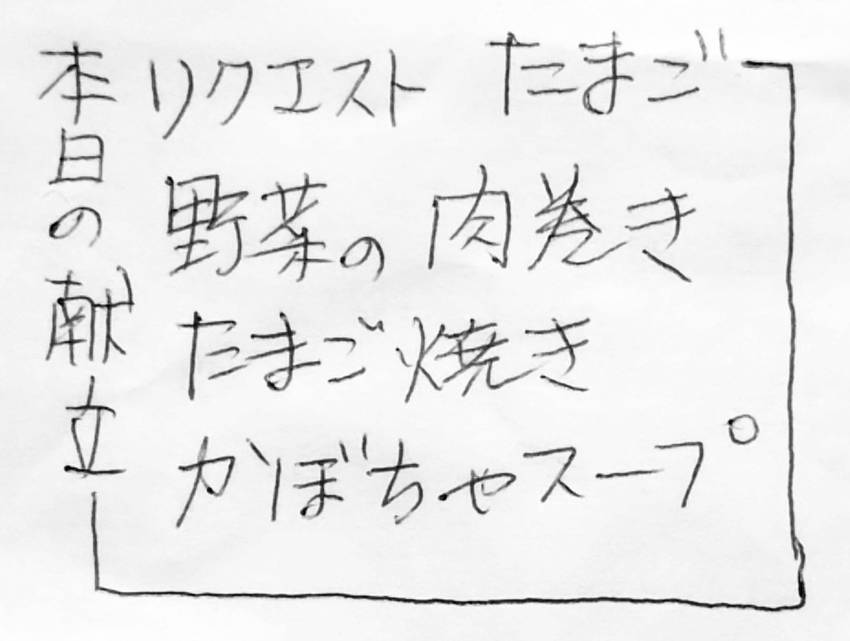 本日の献立
リクエスト たまご
野菜の肉巻き
たまご焼き
かぼちゃスープ